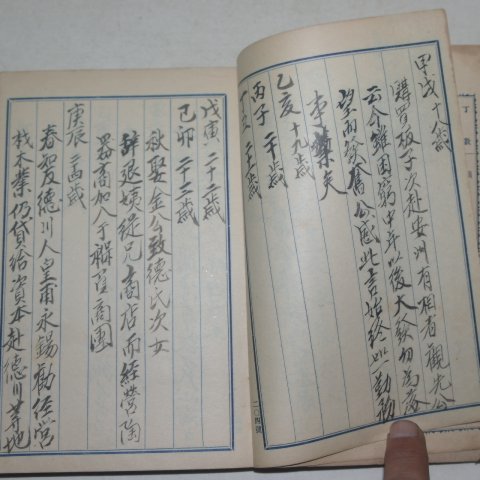 甲戌 十八歲
購買板子次赴安洲有相者觀光公
云今雖困窮中年以後大發勿為落
望而奮公感此言始終以一勤勉
事業矣
乙亥 十九歲
丙子 二十歲
二十一歲
戊寅 二十二歲
己卯 二十三歲
秋娶金公致德氏次女
辭退姨從兄商店而經營陶
器商加入于褓商團
庚辰 二十四歲
春智德川人皇甫永錫勸經營
伐木業仍貸給資本赴德川等地
二〇四號